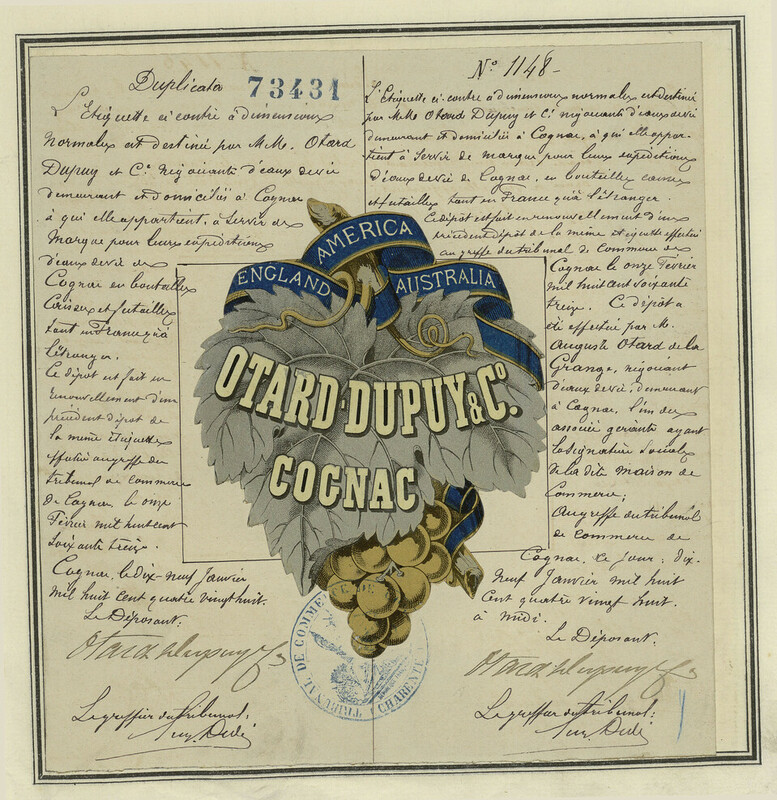 Duplicata 73431
L'Etiquette ci-contre à dimensions
normales est destinée par M.M. Otard
Dupuy et Cie négociants d'eaux de vie
demeurant et domiciliés à Cognac
à qui elle appartient, à servir de
Marque pour leurs expéditions
d'eaux de vie de
Cognac en bouteilles
Caisses et futailles
tant en France qu'à
l'étranger.
Ce dépôt est fait en
renouvellement d'un
précédent dépôt de
la même étiquette
effectué au greffe du
tribunal de commerce
de Cognac, le onze
Février mil huit cent
soixante treize.
Cognac, le dix-neuf Janvier
Mil huit cent quatre vingt huit.
Le Déposant.
Otard Dupuy & Co
Le greffier du tribunal:
N° 1148-
L'Etiquette ci-contre à dimensions normales est destinée
par M.M. Otard Dupuy et Cie négociants d'eaux de vie
demeurant et domiciliés à Cognac, à qui elle appar-
tient à servir de marque pour leurs expéditions
d'eaux de vie de Cognac, en bouteilles caisses
et futailles tant en France qu'à l'étranger.
Ce dépôt est fait en renouvellement d'un
précédent dépôt de la même étiquette effectué
au greffe du tribunal de Commerce de
Cognac le onze Février
mil huit cent soixante
treize. Ce dépôt a
été effectué par M.
Auguste Otard de la
Grange, négociant
d'eaux de vie, demeurant
à Cognac, l'un des
associés gérants ayant
la signature sociale
de la dite Maison de
Commerce;
Au greffe du tribunal
de commerce de
Cognac, ce jour, dix-
neuf Janvier mil huit
cent quatre vingt huit.
à midi.
Le Déposant.
Otard Dupuy & Co
Le greffier du tribunal:
ENGLAND AMERICA AUSTRALIA
OTARD-DUPUY & Co.
COGNAC
TRIBUNAL DE COMMERCE
CHARENTE